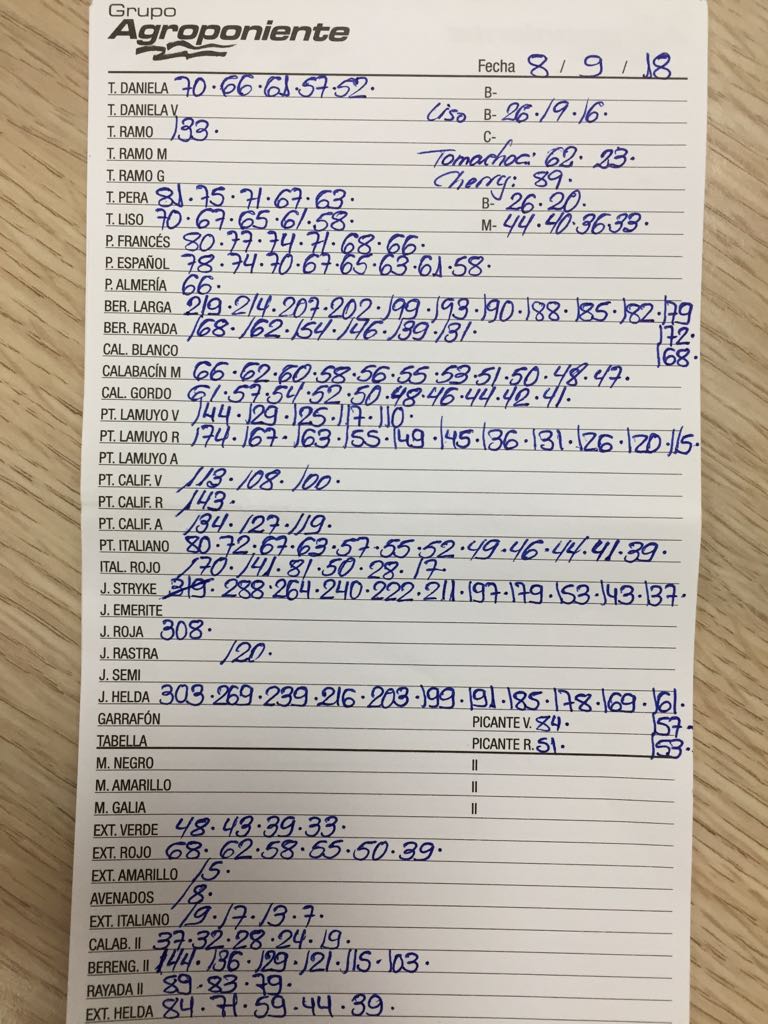 Grupo
Agroponiente
Fecha 8 / 9 / 18
T. DANIELA 70·66·61·57·52· B-
T. DANIELA V Liso B- 26·19·16·
T. RAMO 133· C-
T. RAMO M Tomachoc: 62· 23·
T. RAMO G Cherry: 89·
T. PERA 81·75·71·67·63· B- 26·20·
T. LISO 70·67·65·61·58· M- 44·40·36·33·
P. FRANCÉS 80·77·74·71·68·66·
P. ESPAÑOL 78·74·70·67·65·63·61·58·
P. ALMERÍA 66·
BER. LARGA 219·214·207·202·199·193·190·188·185·182·179
BER. RAYADA 168·162·154·146·139·131· 172·
CAL. BLANCO 168·
CALABACÍN M 66·62·60·58·56·55·53·51·50·48·47·
CAL. GORDO 61·57·54·52·50·48·46·44·42·41·
PT. LAMUYO V 144·129·125·117·110·
PT. LAMUYO R 174·167·163·155·149·145·136·131·126·120·115·
PT. LAMUYO A
PT. CALIF. V 113·108·100·
PT. CALIF. R 143·
PT. CALIF. A 134·127·119·
PT. ITALIANO 80·72·67·63·57·55·52·49·46·44·41·39·
ITAL. ROJO 170·141·81·50·28·17·
J. STRYKE 319·288·264·240·222·211·197·179·153·143·137·
J. EMERITE
J. ROJA 308·
J. RASTRA 120·
J. SEMI
J. HELDA 303·269·239·216·203·199·191·185·178·169·161·
GARRAFÓN PICANTE V. 84· 157·
TABELLA PICANTE R. 51· 153·
M. NEGRO II
M. AMARILLO II
M. GALIA II
EXT. VERDE 48·43·39·33·
EXT. ROJO 68·62·58·55·50·39·
EXT. AMARILLO 15·
AVENADOS 18·
EXT. ITALIANO 19·17·13·7·
CALAB. II 37·32·28·24·19·
BERENG. II 144·136·129·121·115·103·
RAYADA II 89·83·79·
EXT. HELDA 84·71·59·44·39·